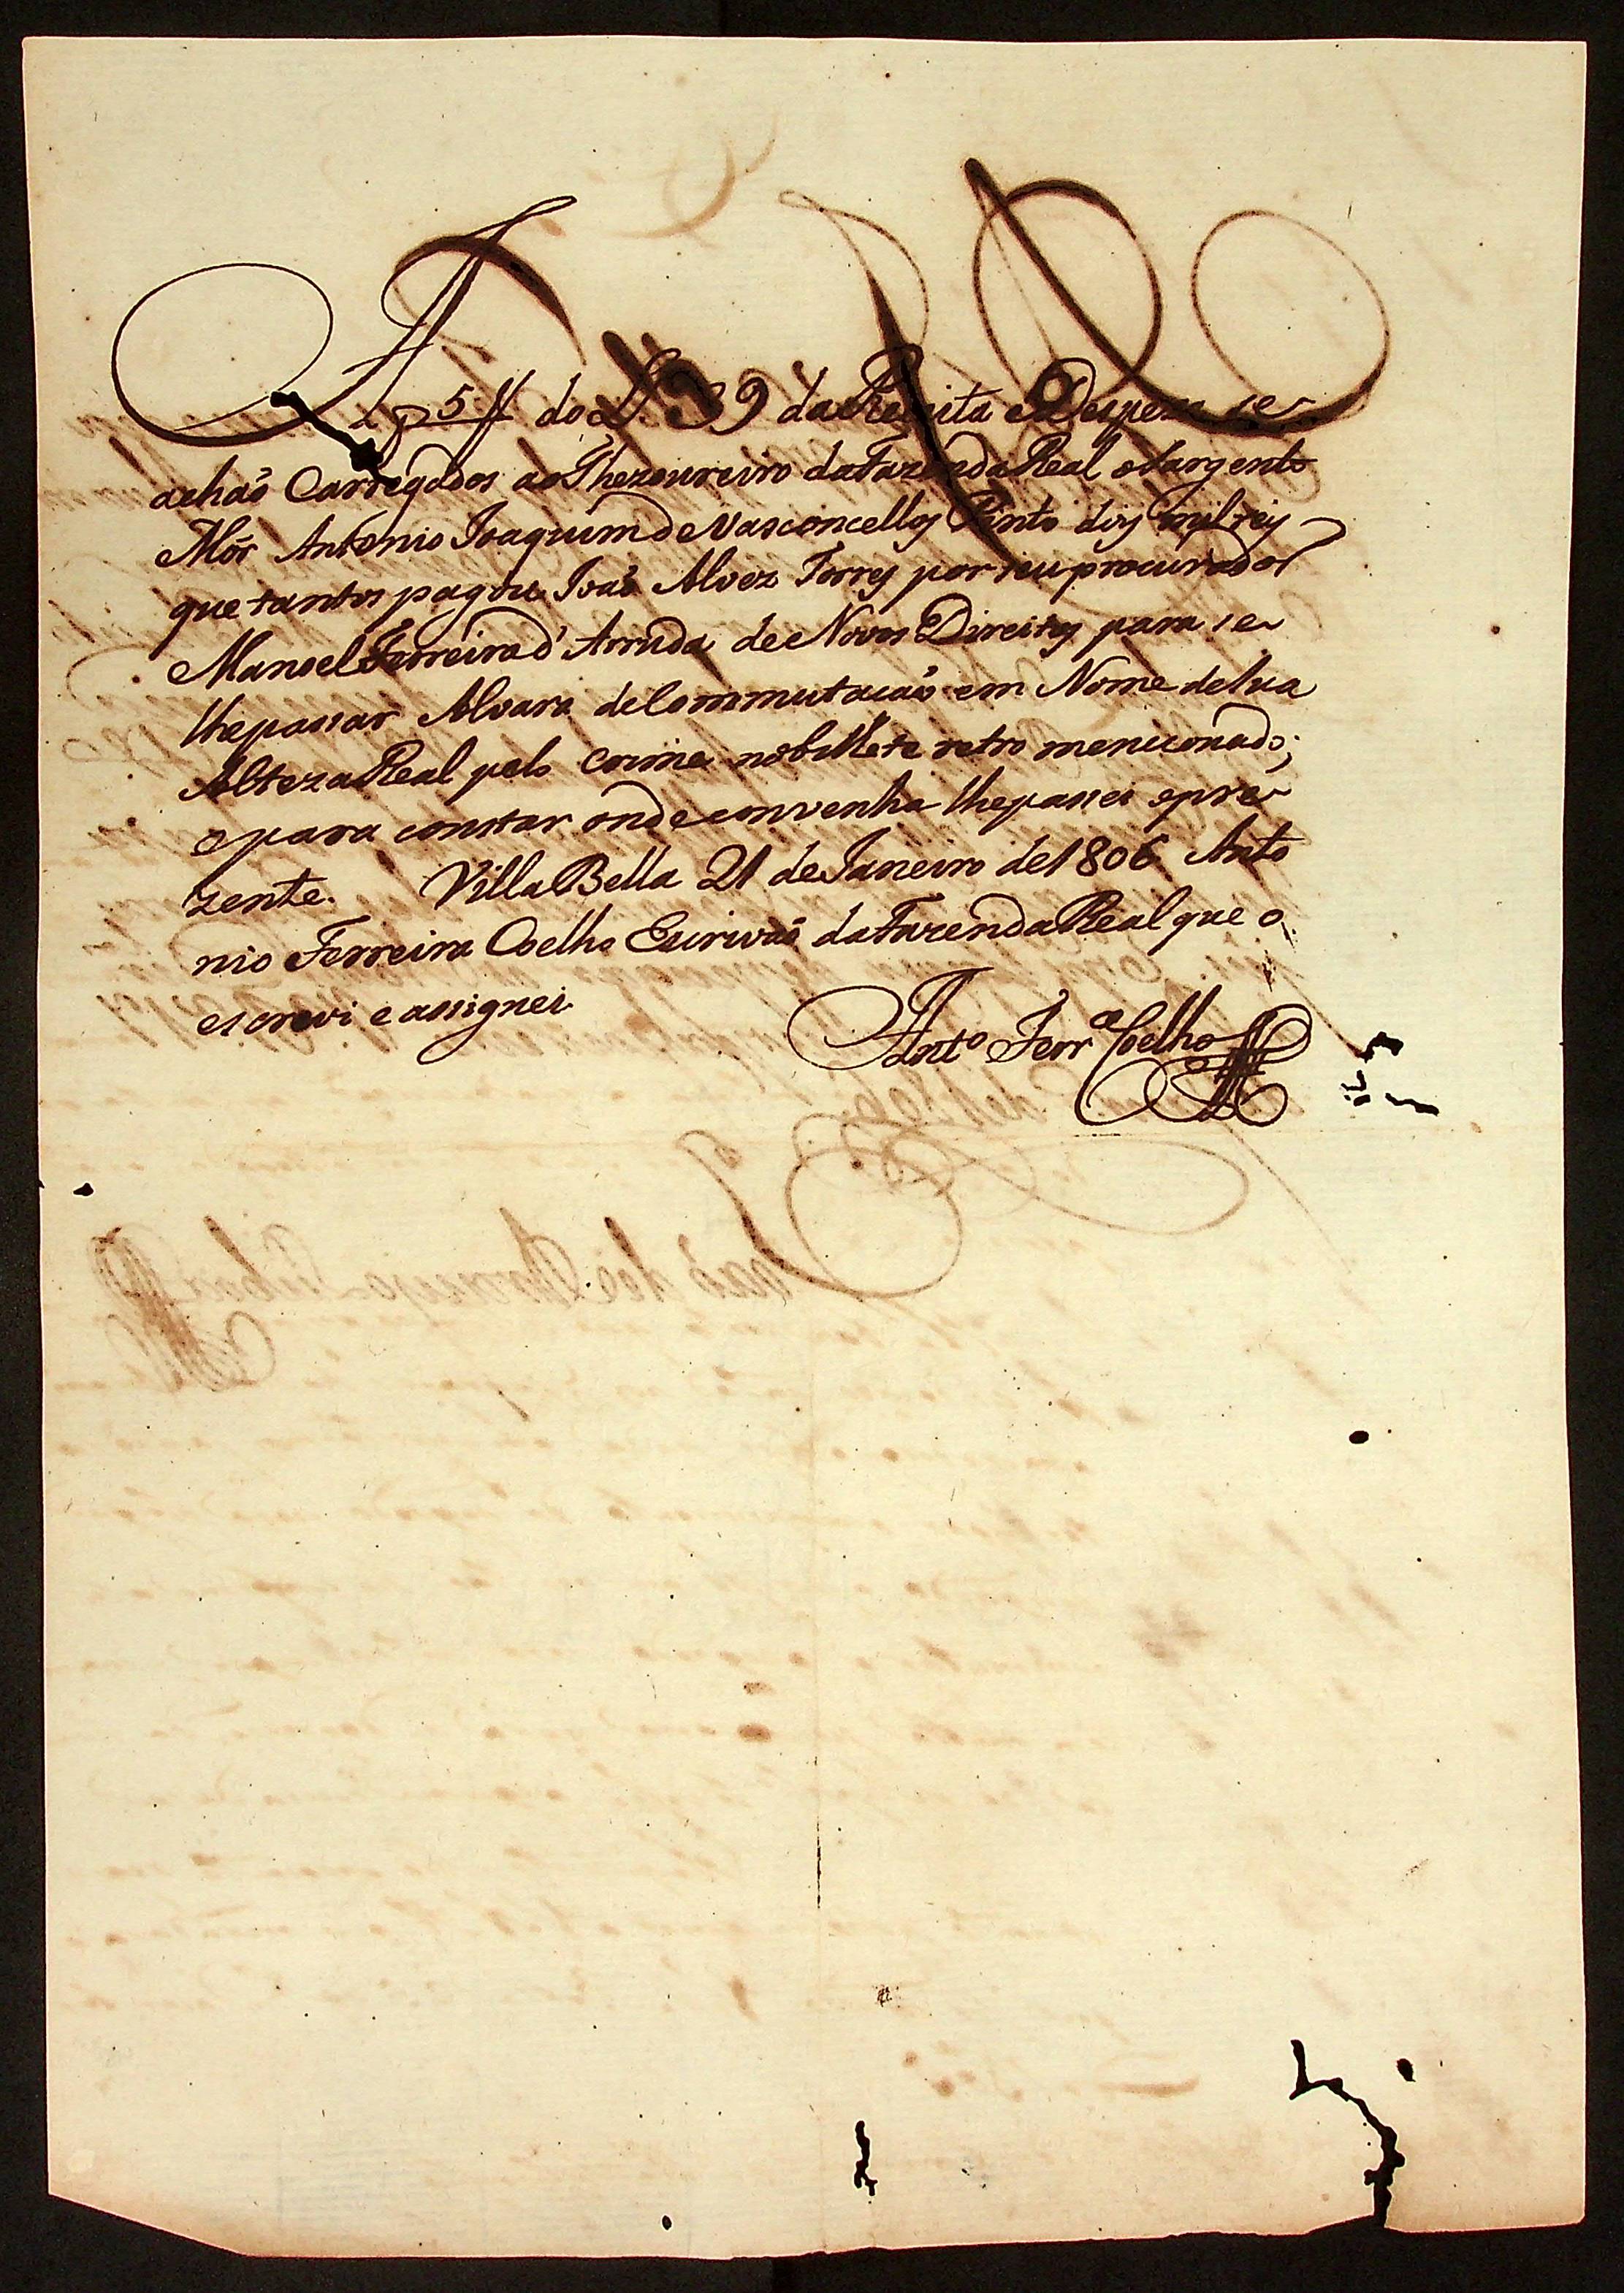 A f 5 do L.º 39 da Receita e Despeza se
achaõ Carregados ao Thezoureiro da Fazenda Real o Sargento
Mór Antonio Joaquim de Vasconcellos Pinto dois mil reis
que tantos pagou Joaõ Alvez Torres por seu procurador
Manoel Ferreira d'Arruda de Novos Direitos para se
lhe passar Alvara de Commutacaõ em Nome de Sua
Alteza Real pelo Crime no bilhete retro mencionado;
e para constar onde convenha lhe passei o pre
zente. Villa Bella 21 de Janeiro de 1806 Anto
nio Ferreira Coelho Escrivaõ da Fazenda Real que o
escrevi e assignei
Antº Ferrª Coelho